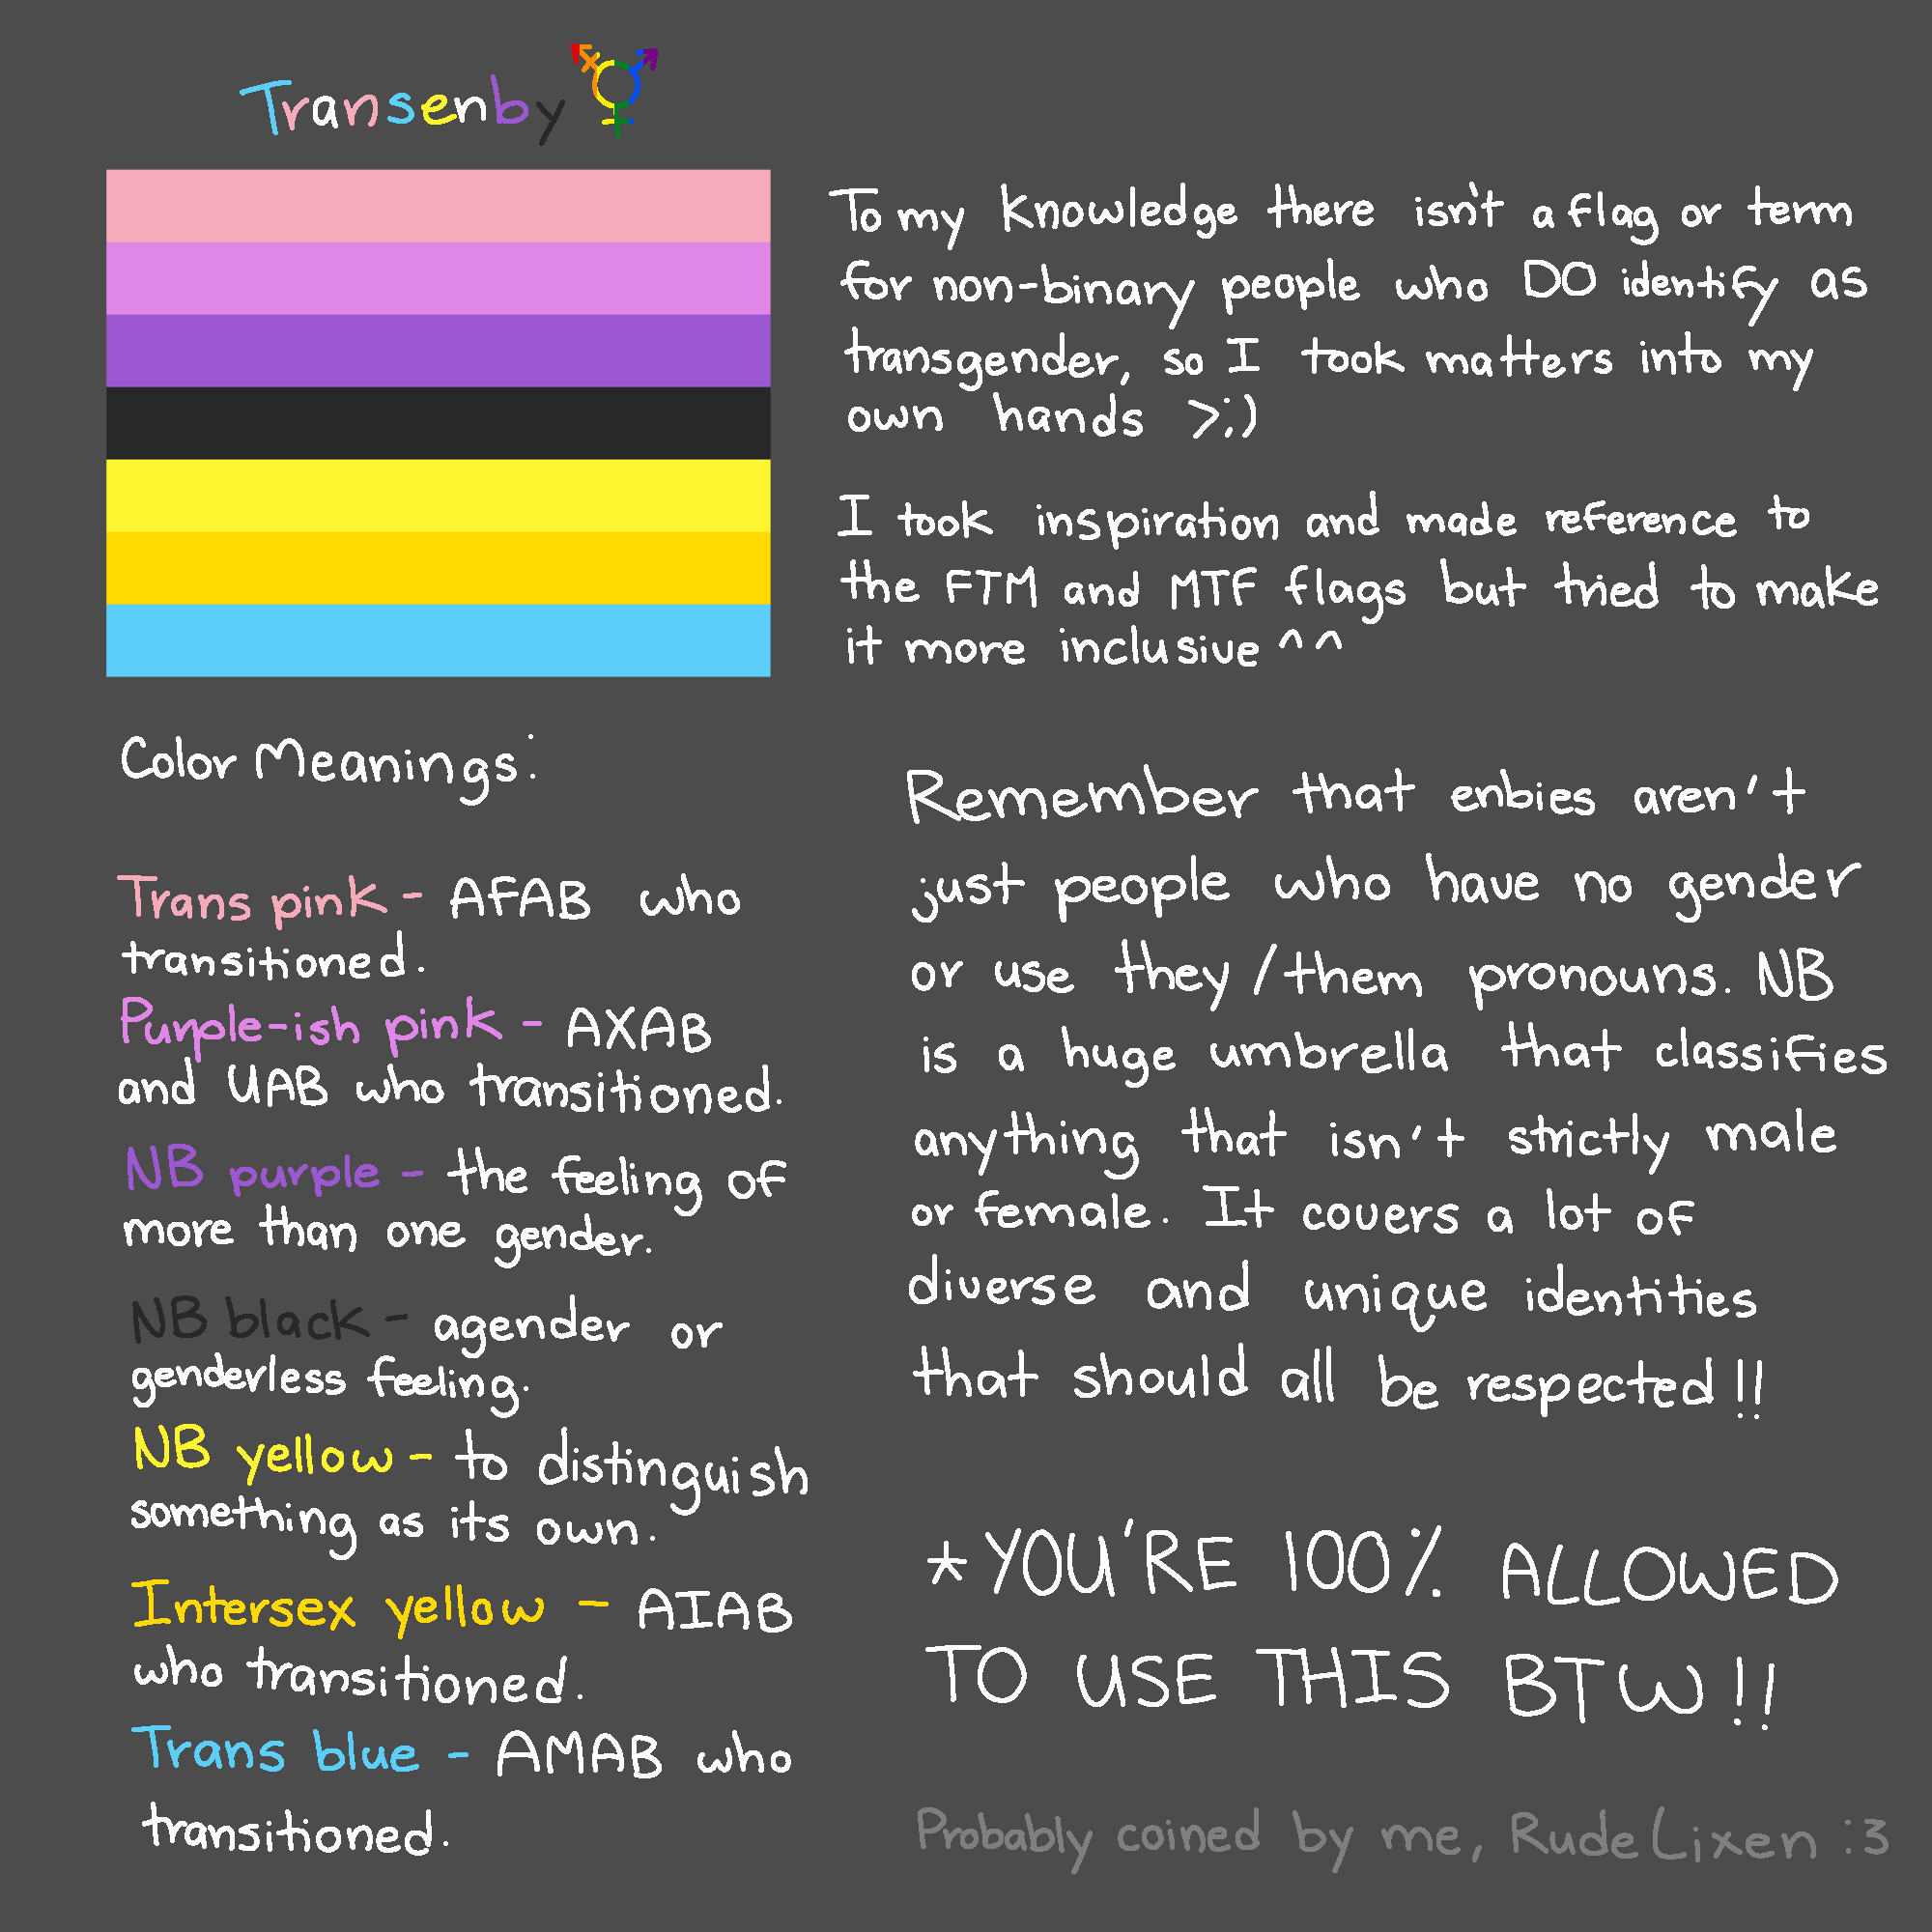 Transenby
To my knowledge there isn't a flag or term
for non-binary people who DO identify as
transgender, so I took matters into my
own hands >;)
I took inspiration and made reference to
the FTM and MTF flags but tried to make
it more inclusive ^^
Color Meanings:
Trans pink - AFAB who
transitioned.
Purple-ish pink - AXAB
and UAB who transitioned.
NB purple - the feeling of
more than one gender.
NB black - agender or
genderless feeling.
NB yellow - to distinguish
something as its own.
Intersex yellow - AIAB
who transitioned.
Trans blue - AMAB who
transitioned.
Remember that enbies aren't
just people who have no gender
or use they/them pronouns. NB
is a huge umbrella that classifies
anything that isn't strictly male
or female. It covers a lot of
diverse and unique identities
that should all be respected!!
*YOU'RE 100% ALLOWED
TO USE THIS BTW!!
Probably coined by me, RudeLixen :3